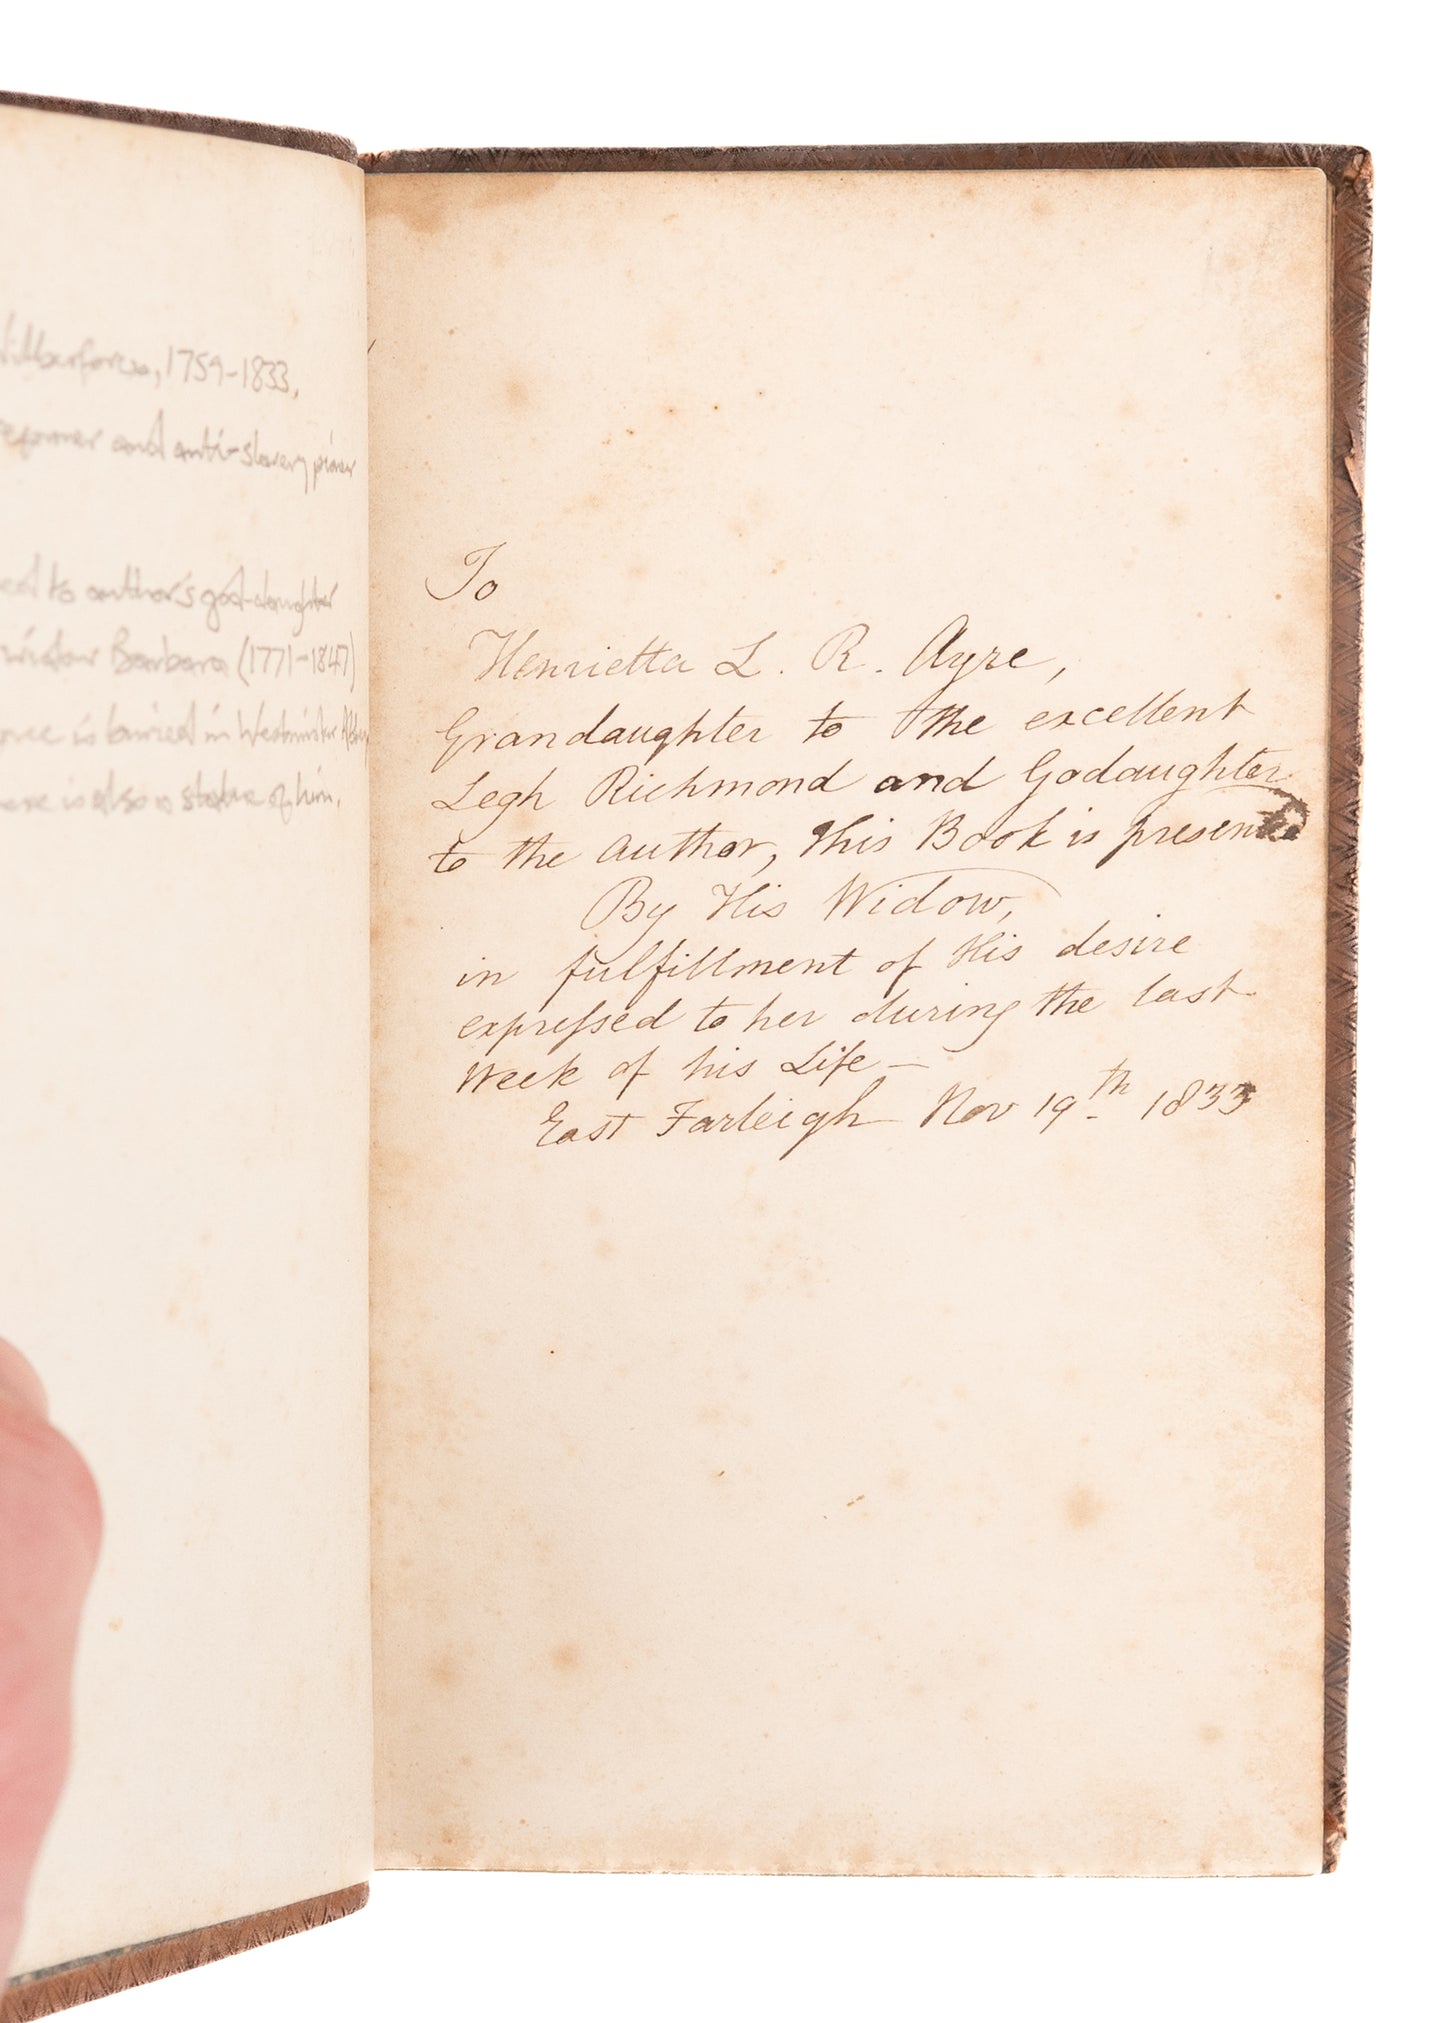 Wilberforce, 1759-1833,
reformer and anti-slavery pioneer
to author's god-daughter
widow Barbara (1771-1847)
is buried in Westminster Abbey
is also a statue of him.
To
Henrietta L. R. Ayre,
Grandaughter to the excellent
Legh Richmond and Godaughter
to the author, this Book is presented
By His Widow,
in fulfillment of His desire
expreſsed to her during the last
Week of his Life —
East Farleigh Nov 19th 1833